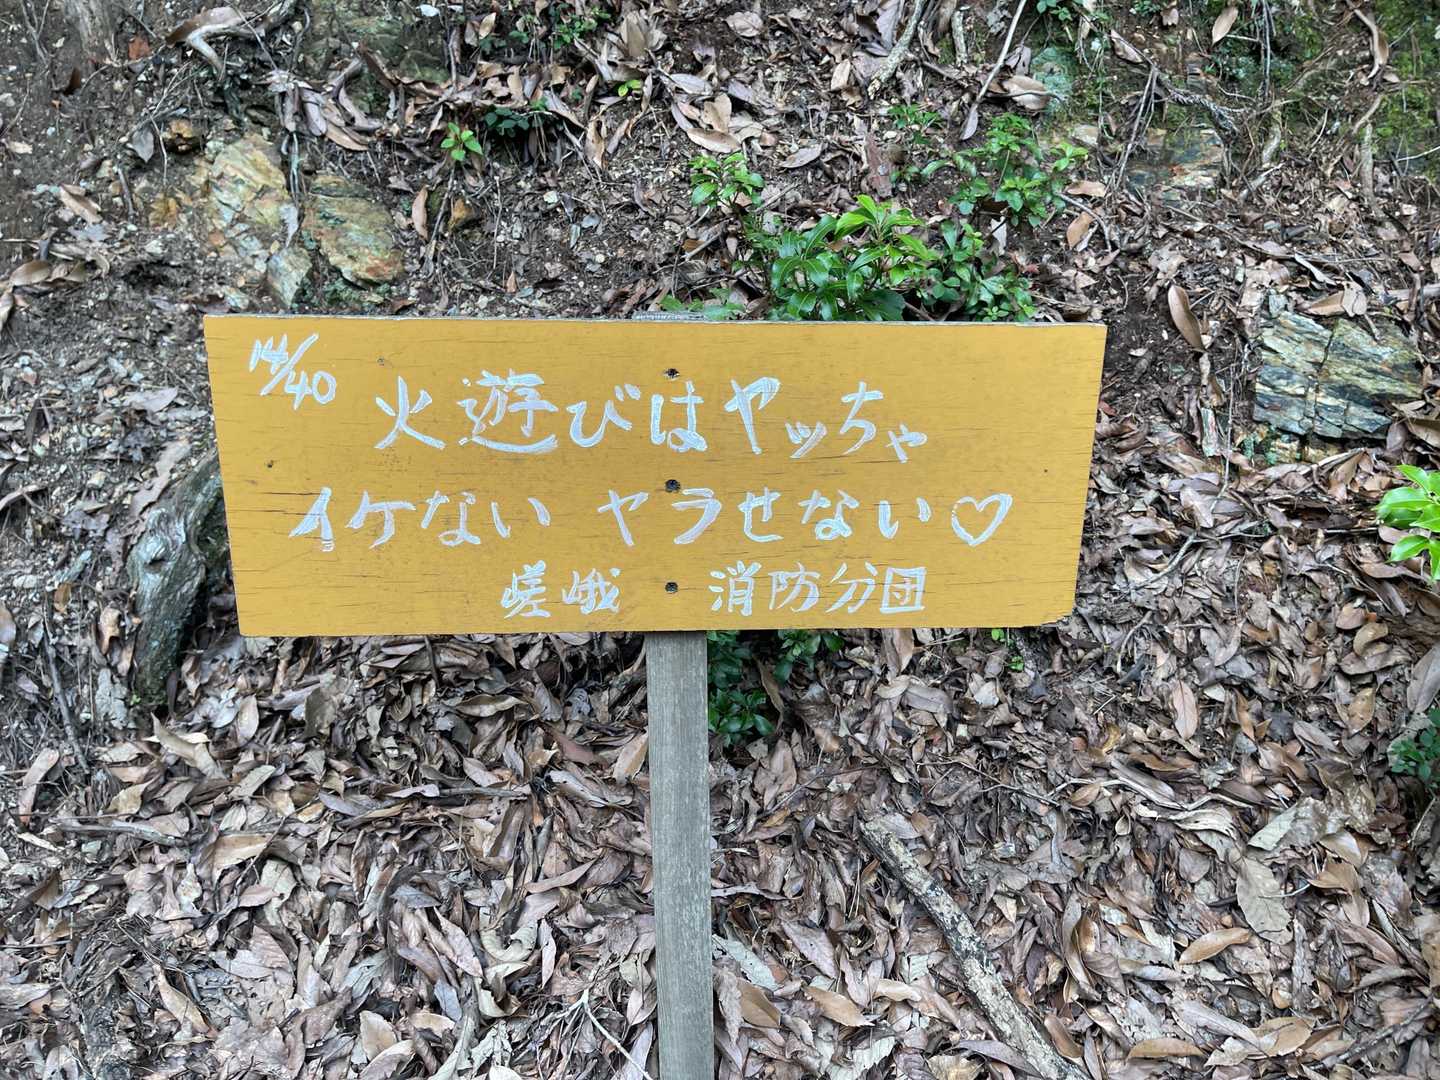 14/40
火遊びはヤッちゃ
イケない ヤラせない♡
嵯峨 消防分団